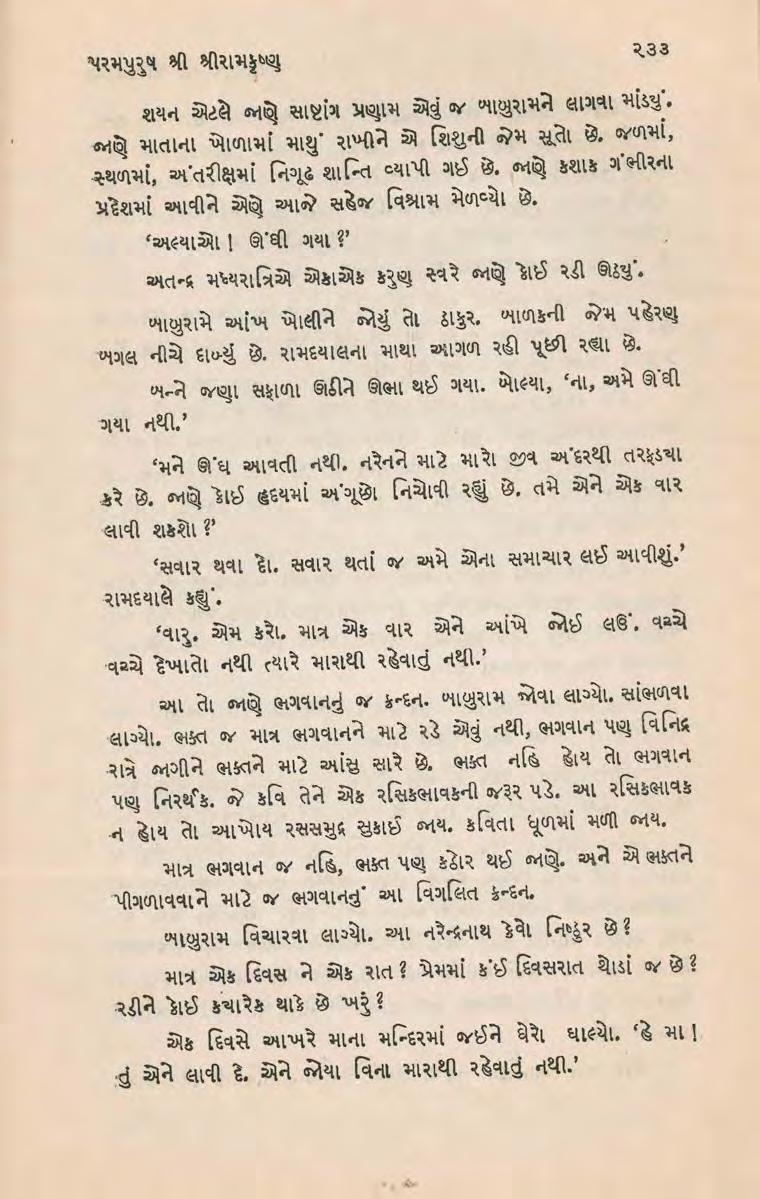 પરમપુરુષ શ્રી શ્રીરામકૃષ્ણ
૨૩૩
શયન એટલે જાણે સાષ્ટાંગ પ્રણામ એવું જ બાબુરામને લાગવા માંડયું.
જાણે માતાના ખોળામાં માથું રાખીને એ શિશુની જેમ સૂતો છે. જળમાં,
સ્થળમાં, અંતરીક્ષમાં નિગૂઢ શાન્તિ વ્યાપી ગઈ છે. જાણે કશાક ગંભીરના
પ્રદેશમાં આવીને એણે આજે સહેજ વિશ્રામ મેળવ્યો છે.
‘અલ્યાઓ ! ઊંઘી ગયા ?’
અતન્દ્ર મધ્યરાત્રિએ એકાએક કરુણ સ્વરે જાણે કોઈ રડી ઊઠયું.
બાબુરામે આંખ ખોલીને જોયું તો ઠાકુર. બાળકની જેમ પહેરણ
બગલ નીચે દાબ્યું છે. રામદયાલના માથા આગળ રહી પૂછી રહ્યા છે.
બન્ને જણા સફાળા ઊઠીને ઊભા થઈ ગયા. બોલ્યા, ‘ના, અમે ઊંઘી
ગયા નથી.’
‘મને ઊંઘ આવતી નથી. નરેનને માટે મારો જીવ અંદરથી તરફડયા
કરે છે. જાણે કોઈ હૃદયમાં અંગૂછો નિચોવી રહ્યું છે. તમે એને એક વાર
લાવી શકશો ?’
‘સવાર થવા દો. સવાર થતાં જ અમે એના સમાચાર લઈ આવીશું.’
રામદયાલે કહ્યું.
‘વારુ. એમ કરો. માત્ર એક વાર એને આંખે જોઈ લઉં. વચ્ચે
વચ્ચે દેખાતો નથી ત્યારે મારાથી રહેવાતું નથી.’
આ તો જાણે ભગવાનનું જ ક્રન્દન. બાબુરામ જોવા લાગ્યો. સાંભળવા
લાગ્યો. ભક્ત જ માત્ર ભગવાનને માટે રડે એવું નથી, ભગવાન પણ વિનિદ્ર
રાત્રે જાગીને ભક્તને માટે આંસુ સારે છે. ભક્ત નહિ હોય તો ભગવાન
પણ નિરર્થક. જે કવિ તેને એક રસિકભાવકની જરૂર પડે. આ રસિકભાવક
ન હોય તો આખોય રસસમુદ્ર સુકાઈ જાય. કવિતા ધૂળમાં મળી જાય.
માત્ર ભગવાન જ નહિ, ભક્ત પણ કઠોર થઈ જાણે. અને એ ભક્તને
પીગળાવવાને માટે જ ભગવાનનું આ વિગલિત ક્રન્દન.
બાબુરામ વિચારવા લાગ્યો. આ નરેન્દ્રનાથ કેવો નિષ્ઠુર છે ?
માત્ર એક દિવસ ને એક રાત ? પ્રેમમાં કંઈ દિવસરાત થોડાં જ છે ?
રડીને કોઈ કયારેક થાકે છે ખરું ?
એક દિવસે આખરે માના મન્દિરમાં જઈને ઘેરો ઘાલ્યો. ‘હે મા !
તું એને લાવી દે. એને જોયા વિના મારાથી રહેવાતું નથી.’